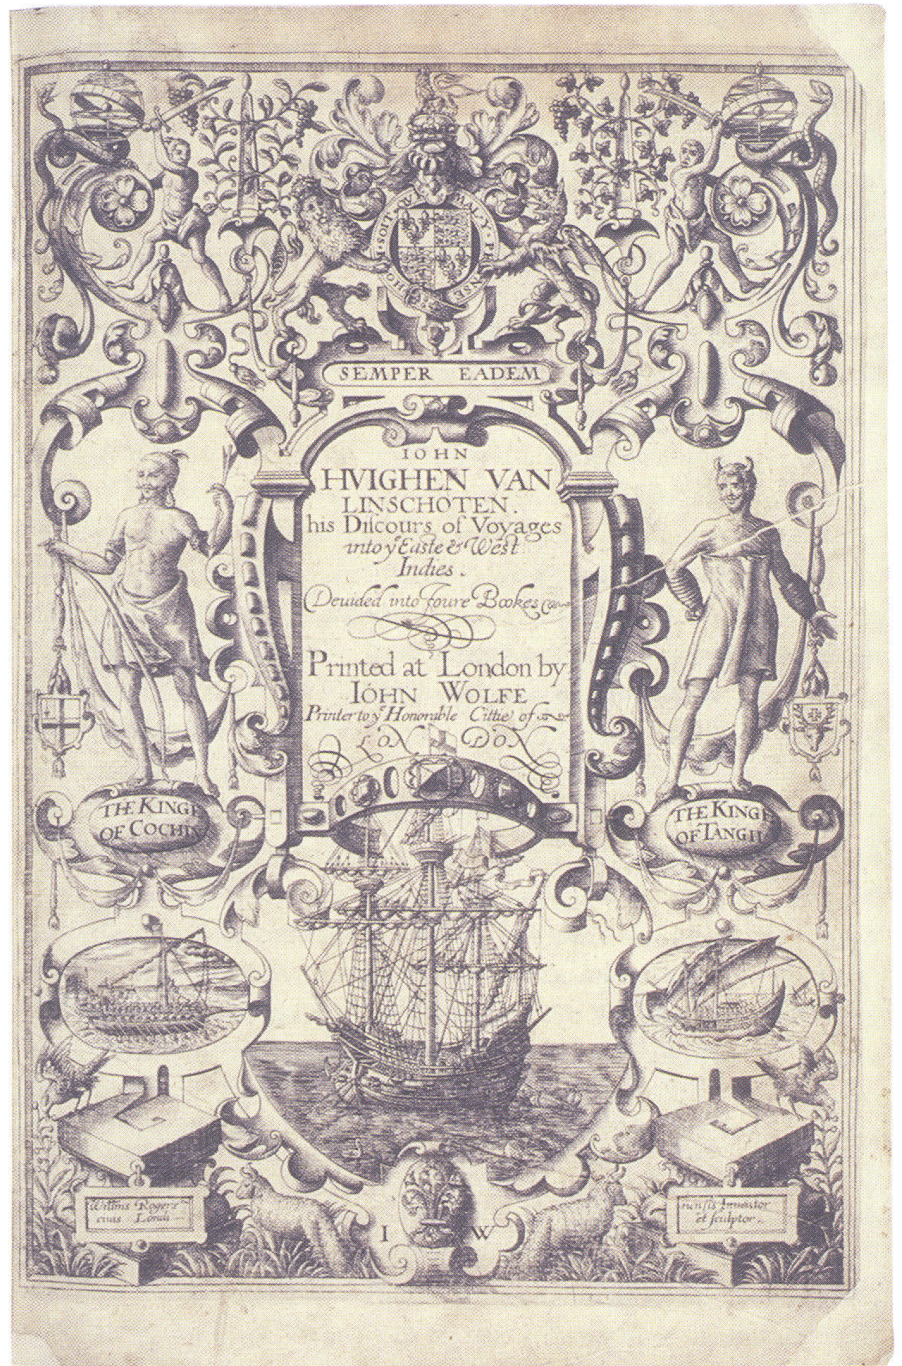 HONI SOIT QVI MAL Y PENSE
SEMPER EADEM
IOHN
HVIGHEN VAN
LINSCHOTEN.
his Discours of Voyages
into yͤ Easte & West
Indies.
Deuided into foure Bookes
Printed at London by
IOHN WOLFE
Printer to yͤ Honorable Cittie of
LONDON
THE KINGE
OF COCHIN
THE KINGE
OF TANGIL
Willms Rogers
ciuis Lond:
nensis Inuentor
et sculptor.
I W